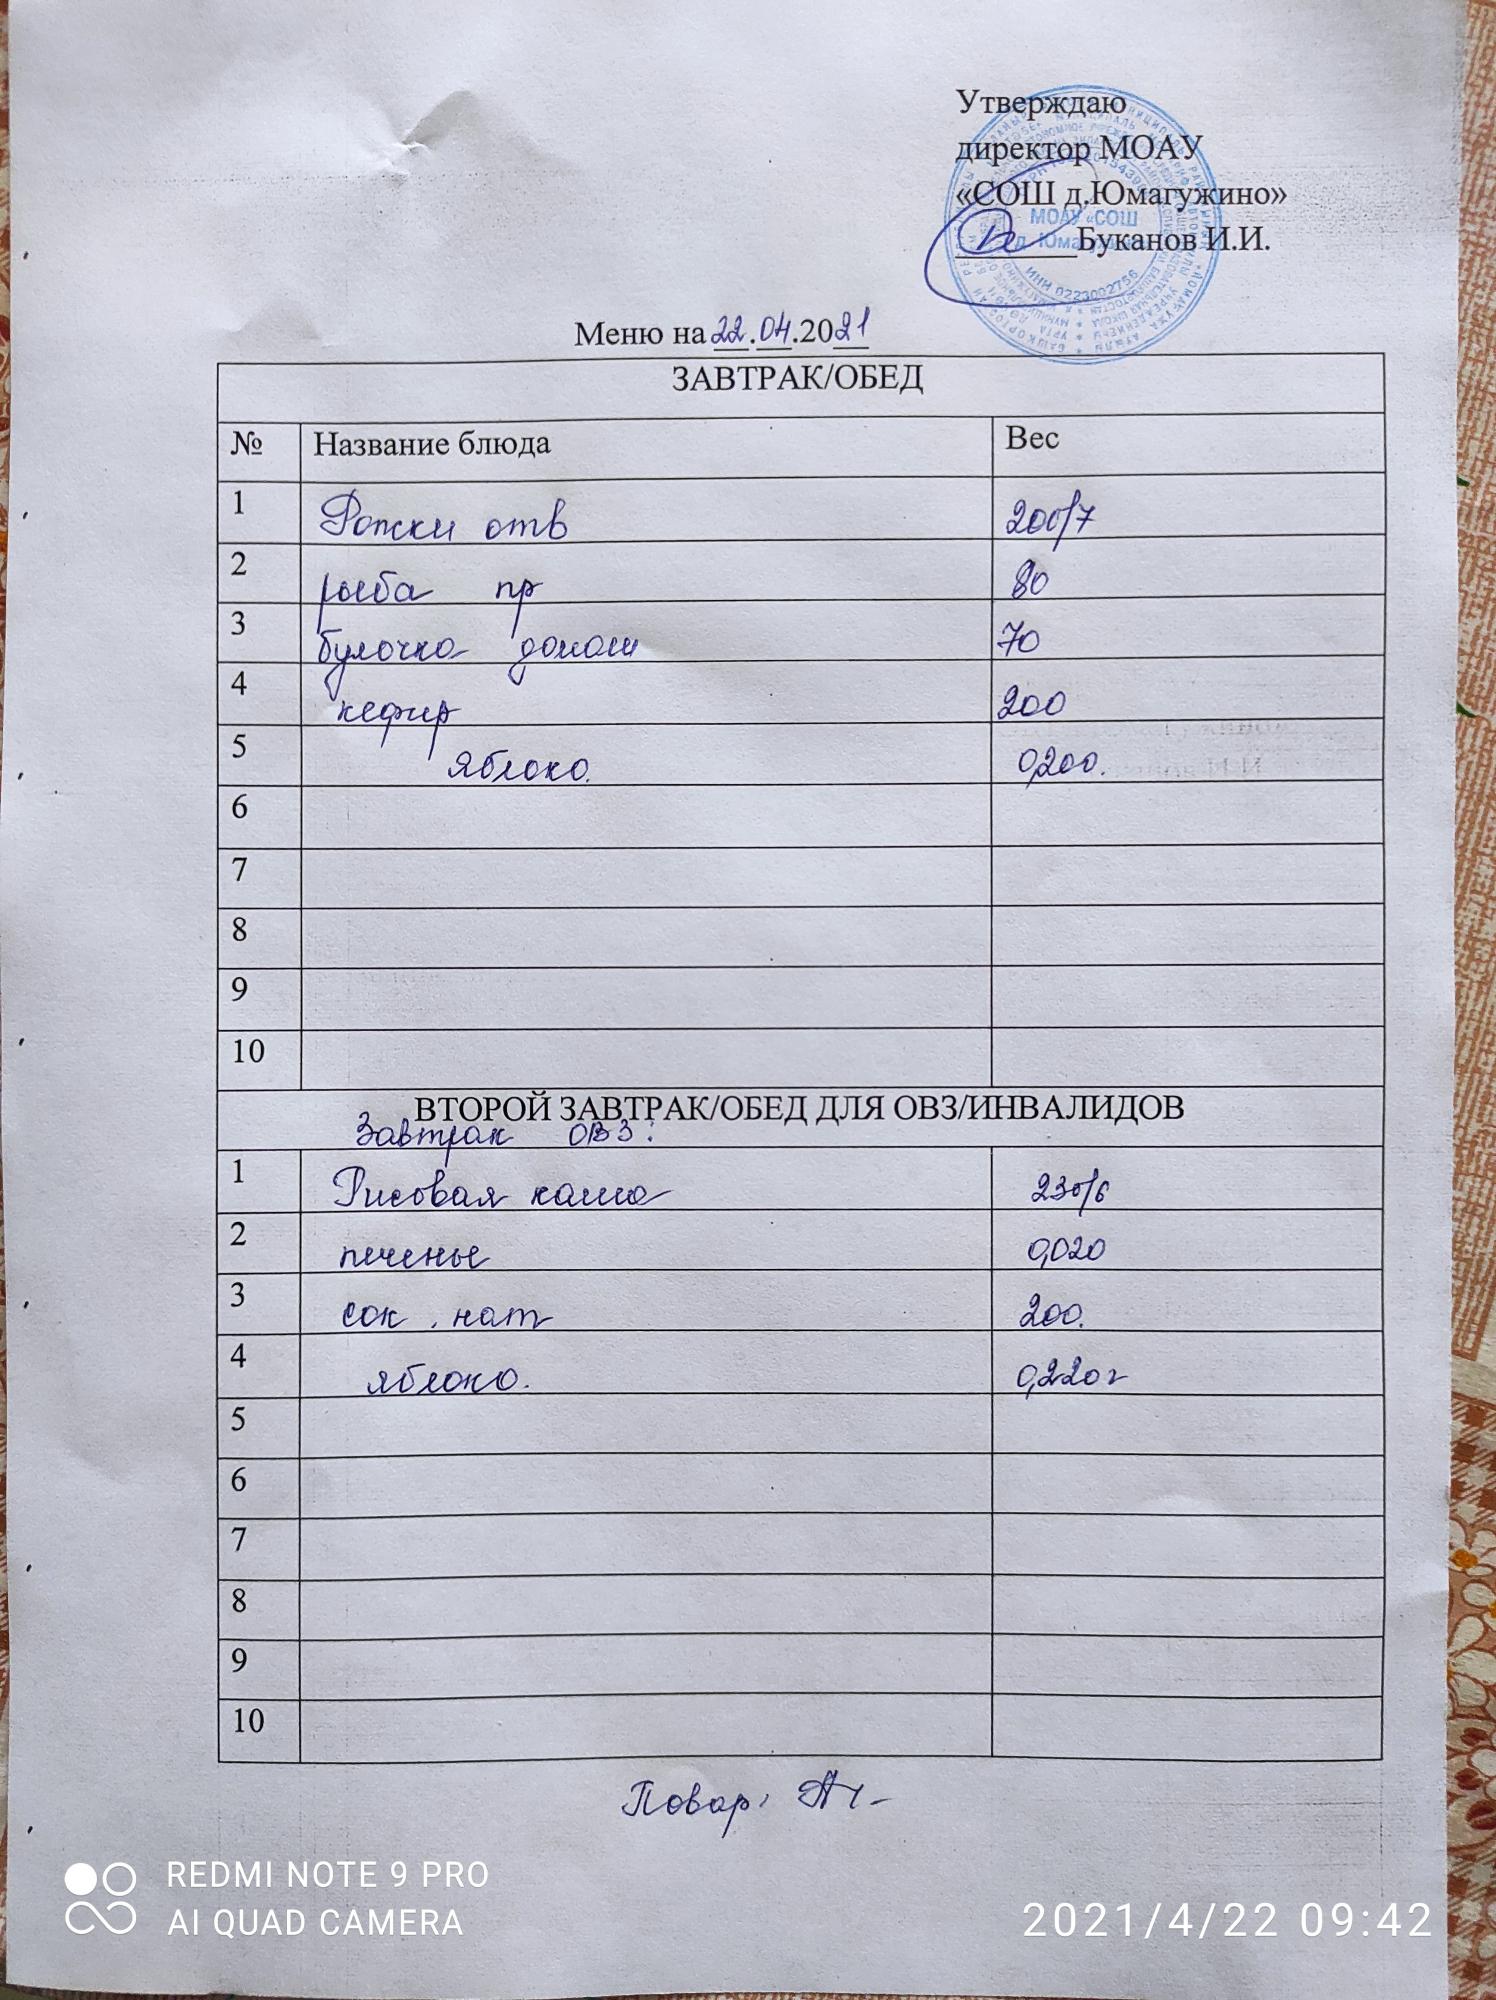 Утверждаю
директор МОАУ
«СОШ д.Юмагужино»
Буканов И.И.
МОАУ «СОШ
д. Юмагужино
ИНН 0223002756
Меню на 22.04.2021
ЗАВТРАК/ОБЕД
№ Название блюда Вес
1 Рожки отв 200/7
2 рыба пр 80
3 булочка домаш 70
4 кефир 200
5 яблоко. 0,200.
6
7
8
9
10
ВТОРОЙ ЗАВТРАК/ОБЕД ДЛЯ ОВЗ/ИНВАЛИДОВ
Завтрак ОВЗ:
1 Рисовая каша 230/6
2 печенье 0,020
3 сок . нат 200.
4 яблоко. 0,220г
5
6
7
8
9
10
Повар:
REDMI NOTE 9 PRO
AI QUAD CAMERA
2021/4/22 09:42